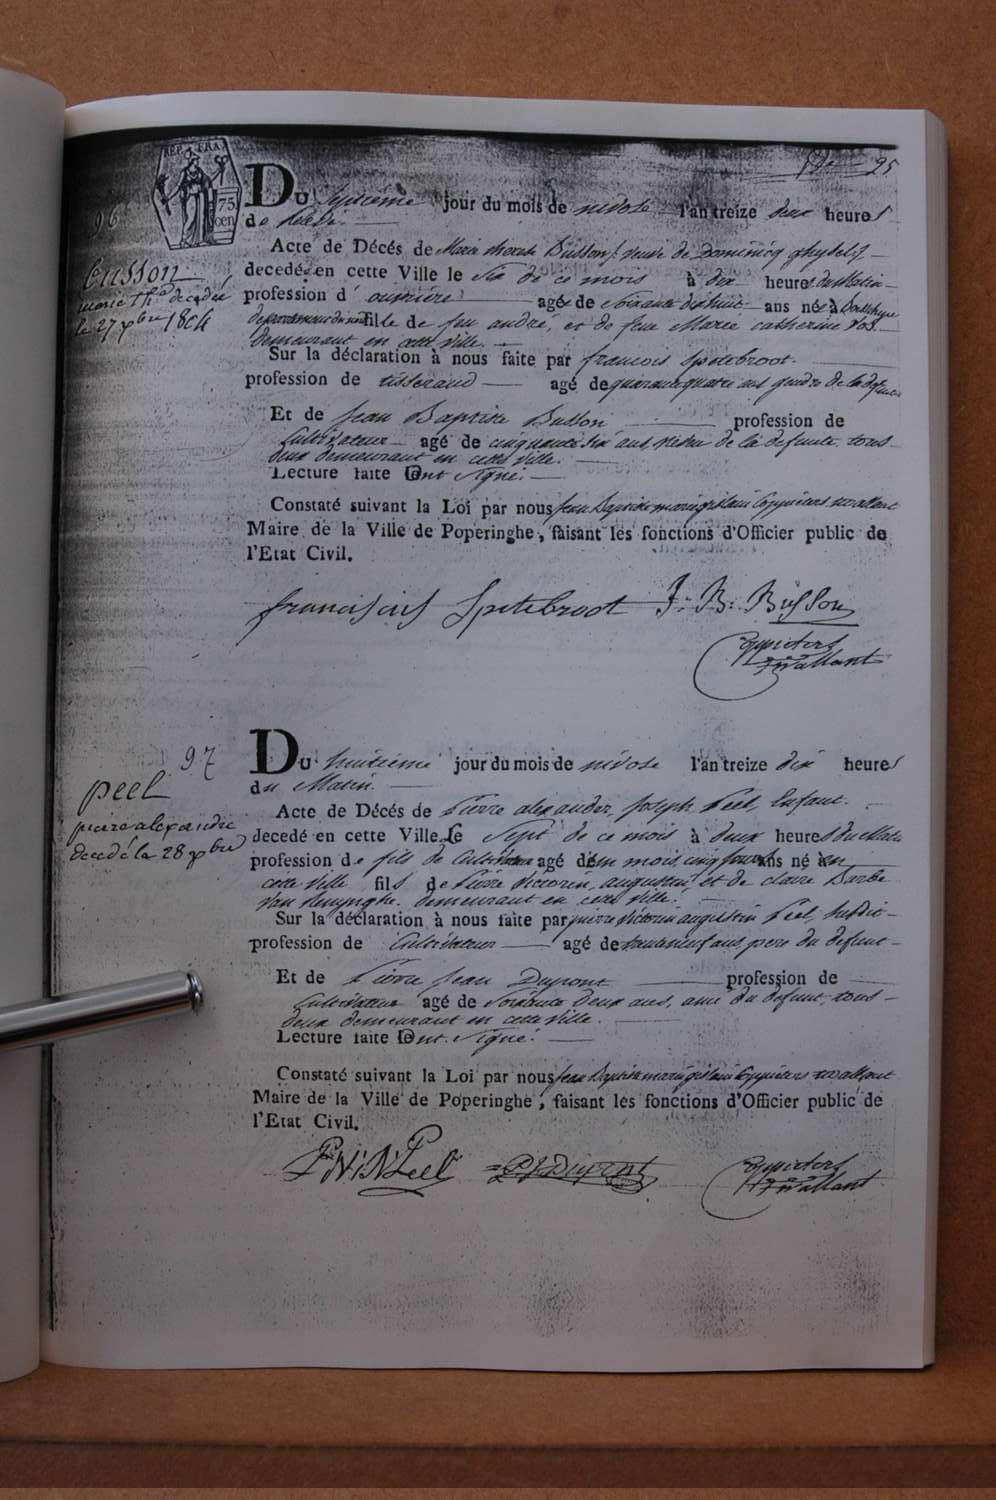 REP. FRA.
75
cen
25
96
Du septieme jour du mois de nivose l'an treize deux heures
de relevé.
Acte de Décés de Marie therese Busson, veuve de Dominicq ghyselz
decedée en cette Ville le Six de ce mois à dix heures du Matin
profession d' ouvriére agée de Soixante dixhuit ans né à
fille de feu andré, et de feue Marie catherine vos
demeurant en cette ville.
Sur la déclaration à nous faite par francois Spetebroot
profession de tisserand agé de quarante quatre ans gendre de la defunte
Et de Jean Baptiste Busson profession de
Cultivateur agé de cinquante six ans, neveu de la defunte, tous
deux demeurant en cette ville.
Lecture faite ont signé.
Constaté suivant la Loi par nous Jean Baptiste marie gislain Coppieters wallant
Maire de la Ville de Poperinghe, faisant les fonctions d'Officier public de
l'Etat Civil.
Busson
marie Th.e decedé
le 27 xbre 1804
franciscus Spetebroot J: B: Busson
Coppieters
wallant
97
Du huitieme jour du mois de nivose l'an treize dix heures
du Matin.
Acte de Décés de Pierre alexander Joseph Peel, Enfant.
decedé en cette Ville Le Sept de ce mois à deux heures du Matin
profession de fils de Cultivateur agé d'un mois cinq jours ans né en
cette ville fils de Pierre Victorin, augustin, et de claire Barbe
demeurant en cette ville.
Sur la déclaration à nous faite par pierre Victorin augustin Peel, susdit
profession de Cultivateur agé de trenteneuf ans, pere du defunt
Et de Pierre Jean Dupont profession de
Cultivateur agé de Soixante deux ans, ami du defunt, tous
deux demeurant en cette ville.
Lecture faite ont signé.
Constaté suivant la Loi par nous Jean Baptiste marie gislain Coppieters wallant
Maire de la Ville de Poperinghe, faisant les fonctions d'Officier public de
l'Etat Civil.
peel
pierre alexandre
decedé le 28 xbre
Peel Dupont
Coppieters
wallant